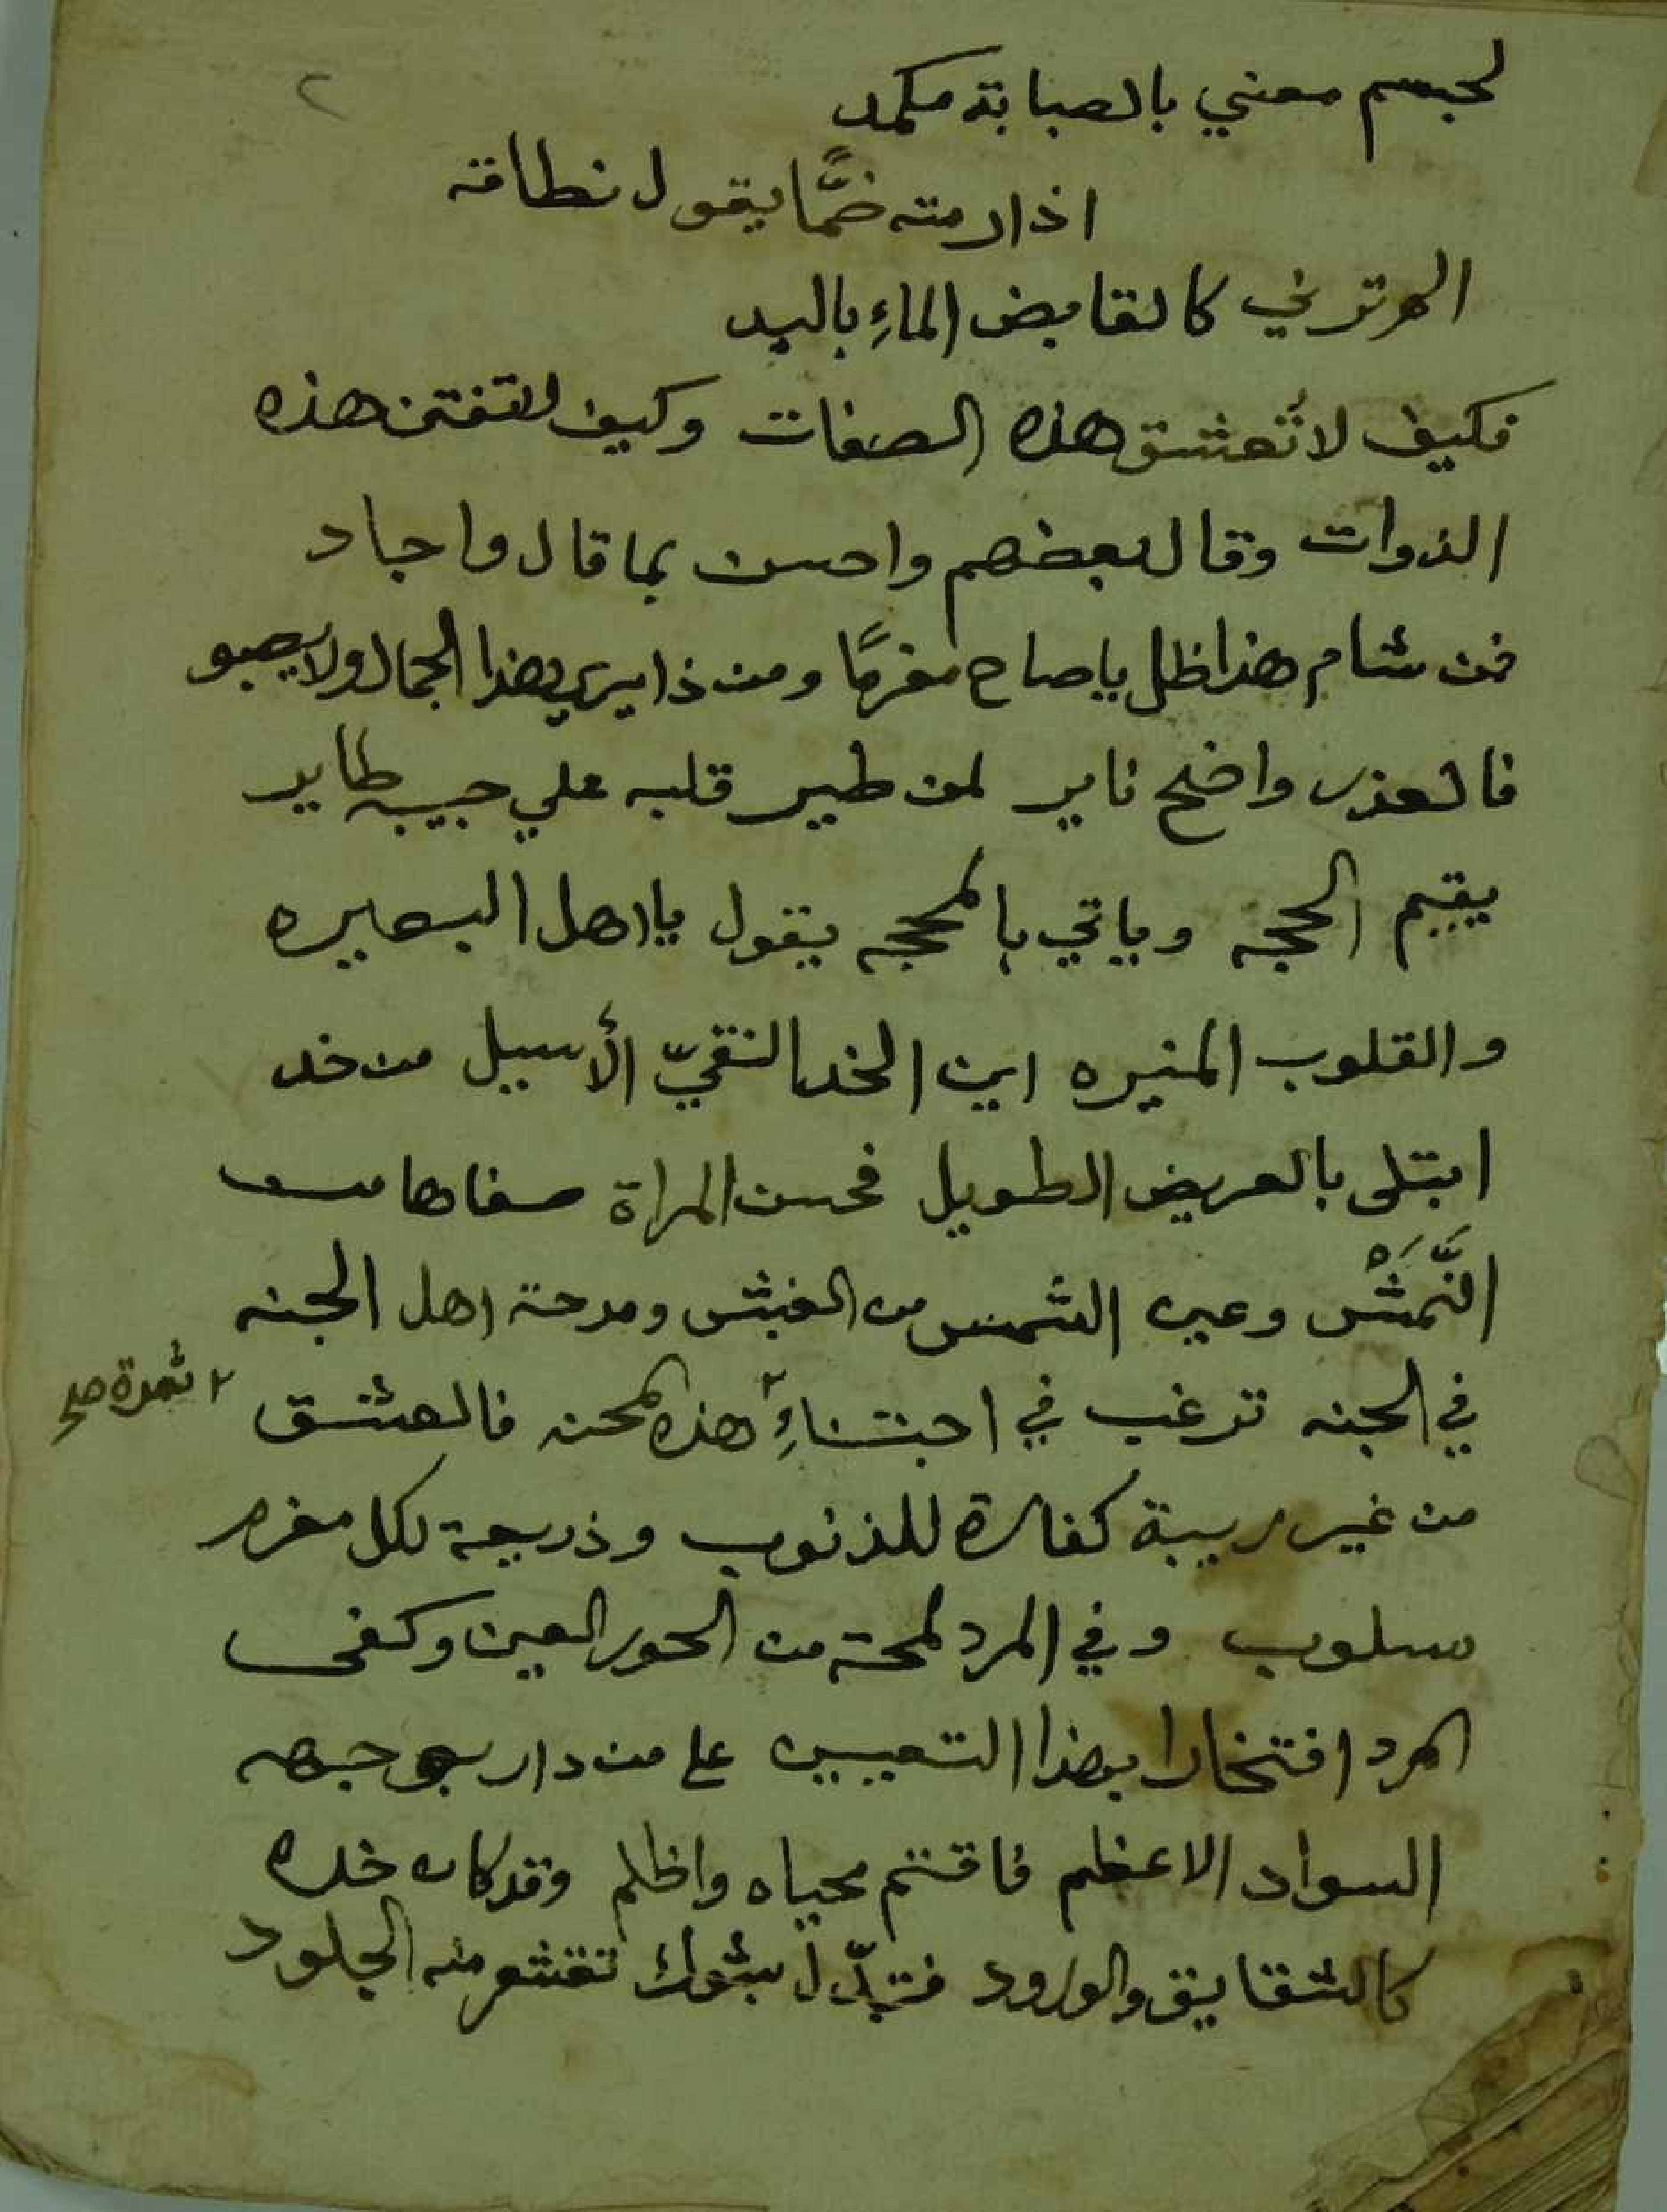 ٢
لجسم معني بالصبابة مكمد
اذا رمته ضمًّا يقول نطاقه
الم ترني كالقابض الماءِ باليد
فكيف لا تُعشق هذه الصفات وكيف لا تفتن هذه
الذوات وقال بعضهم واحسن بما قال واجاد
فمن شام هذا ظل يا صاح مغرمًا ومن ذا يري هذا الجمال ولا يصبو
فالعذر واضح ناير لمن طير قلبه علي حبيبه طاير
يقيم الحجه وياتي بالمحجه يقول يا اهل البصيره
والقلوب المنيره اين الخد النقيّ الأسيل من خد
ابتلى بالعريض الطويل فحسن المراة صفاها من
النَّمَشْ وعين الشمس من الغبش ومدحة اهل الجنه
في الجنه ترغب في اجتناءِ٢ هذه المحنه فالعشق
٢ ثمرة صح
من غير ريبة كفارة للذنوب وذريعة لكل مغرم
سلوب وفي المرد لمحة من الحور العين وكفى
المرد افتخارا بهذا التعيين على من دار بوجهه
السواد الاعظم فاقتتم محياه واظلم وقد كان خده
كالشقايق والورود فتبدّل بشوك تقشعر منه الجلود